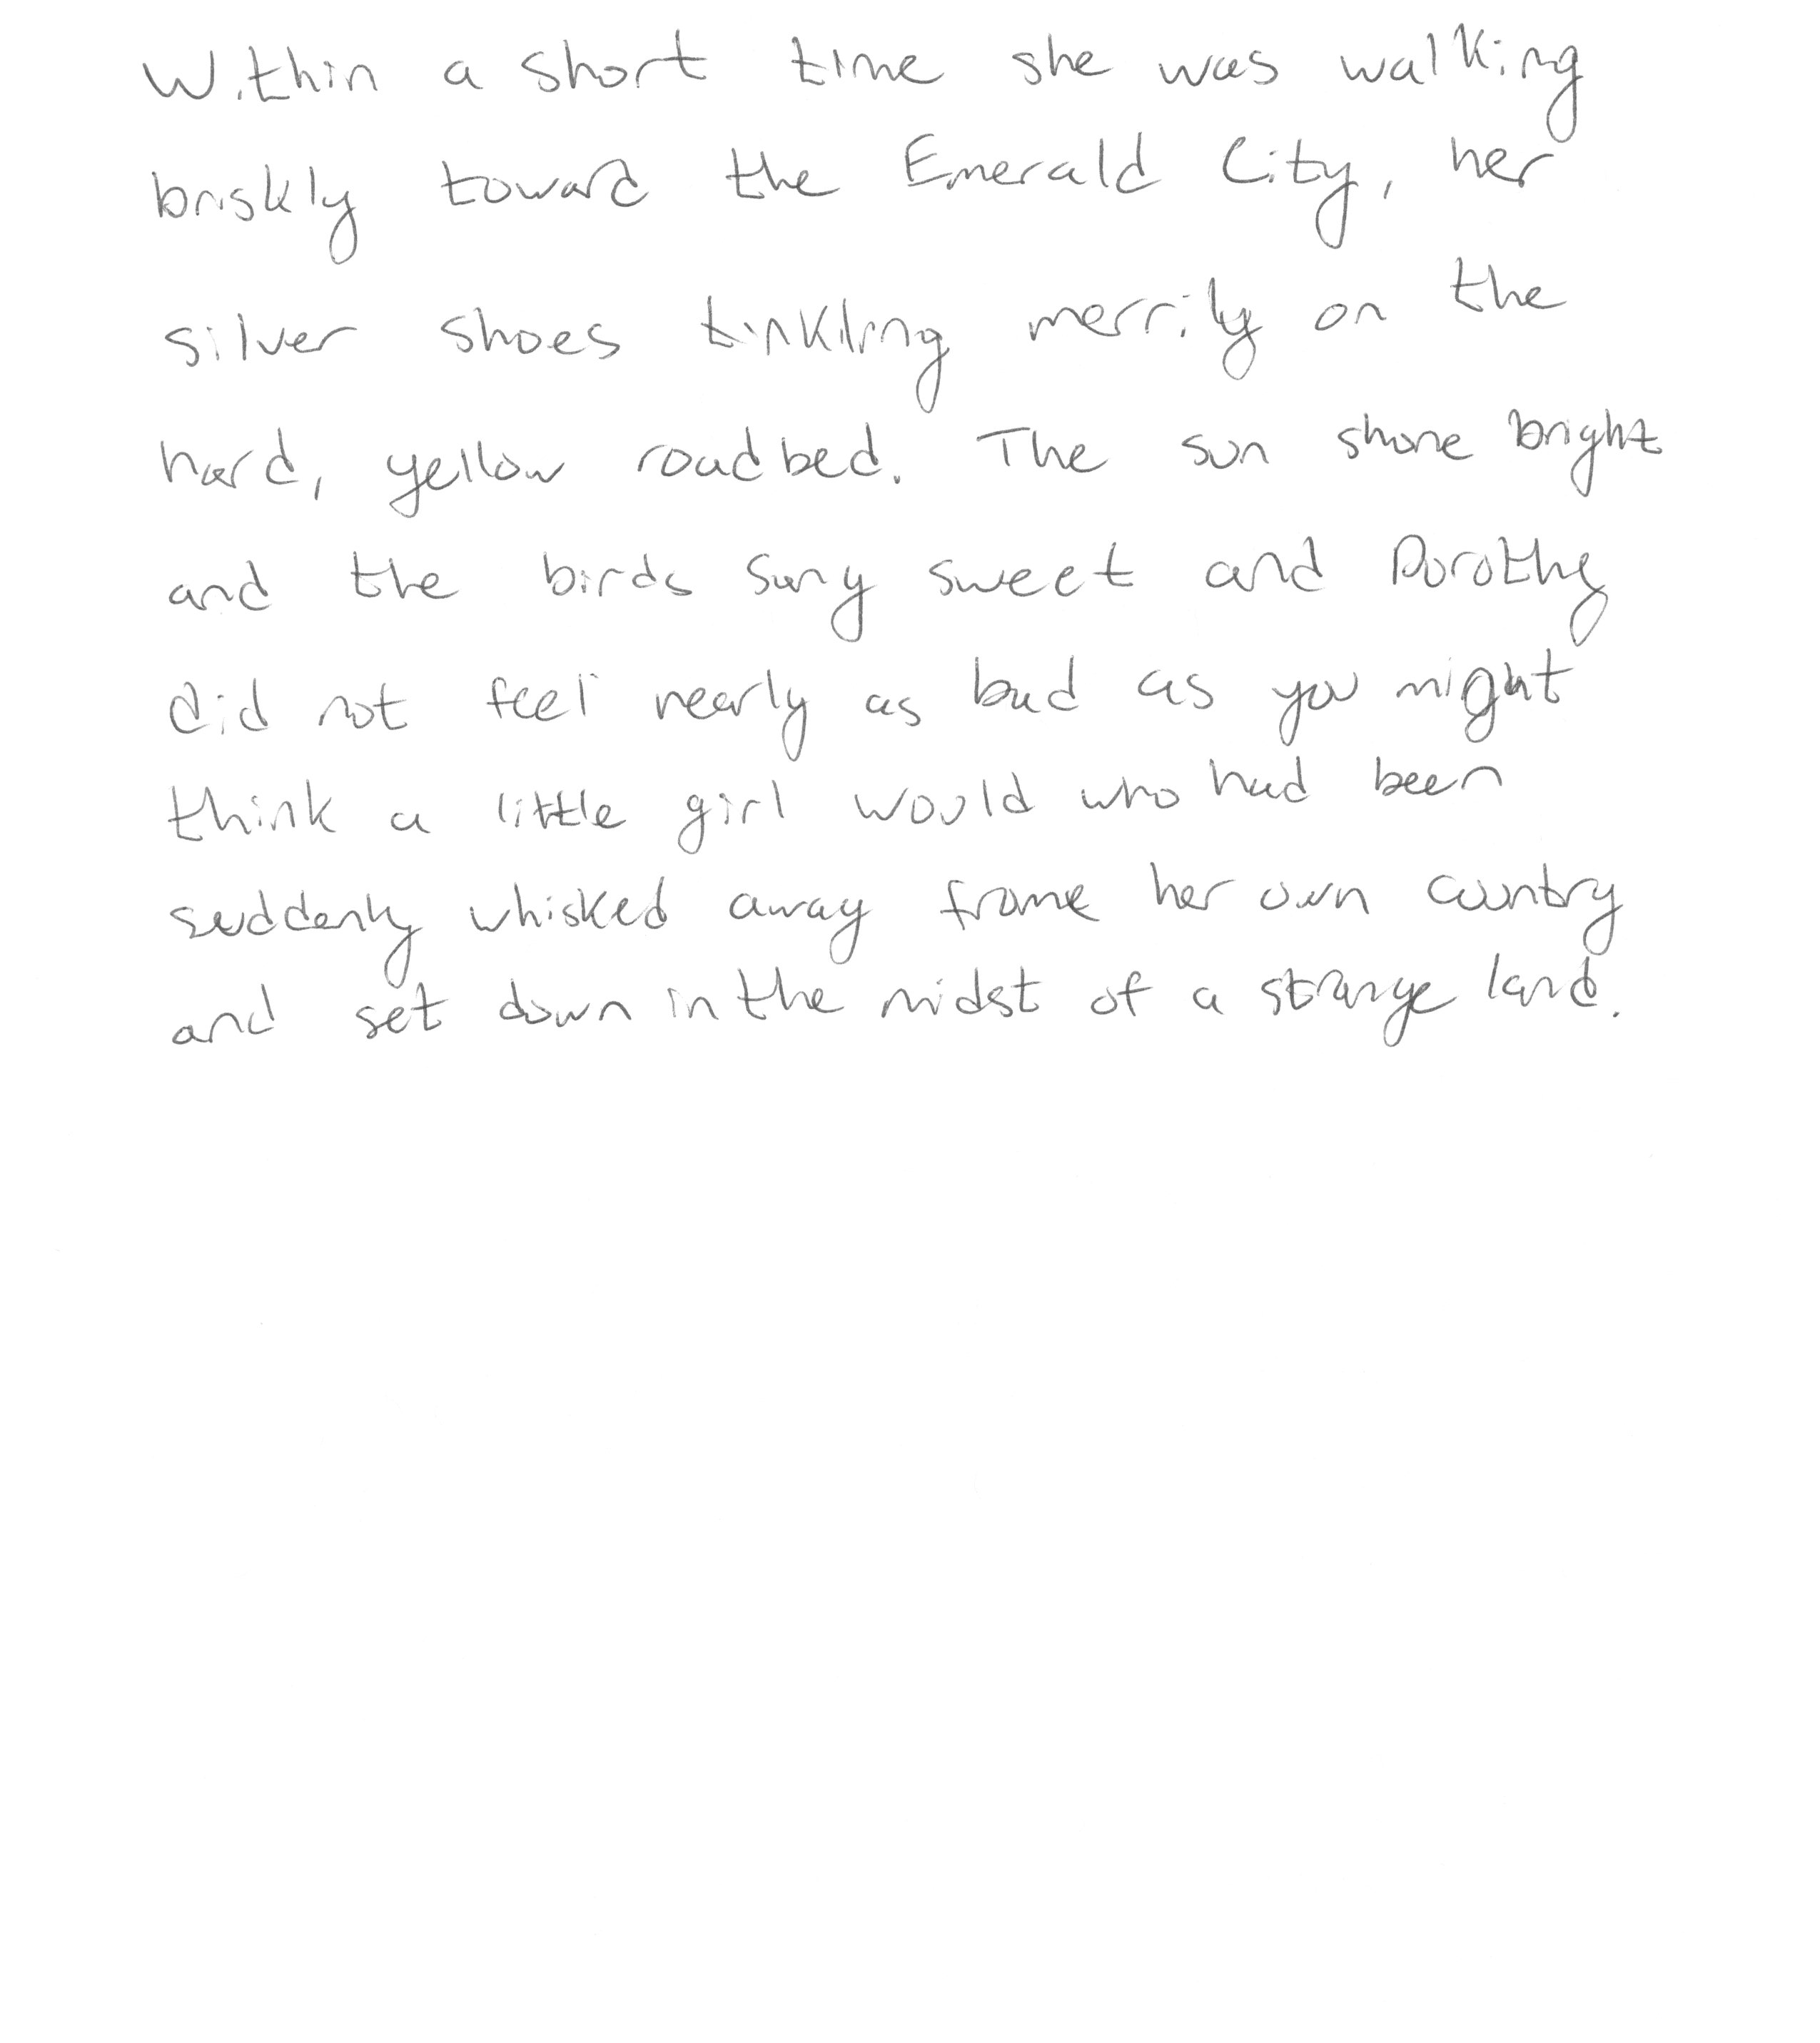 Within a short time she was walking
briskly toward the Emerald City, her
silver shoes tinkling merrily on the
hard, yellow roadbed. The sun shone bright
and the birds sung sweet and Dorothy
did not feel nearly as bad as you might
think a little girl would who had been
suddenly whisked away frome her own country
and set down in the midst of a strange land.